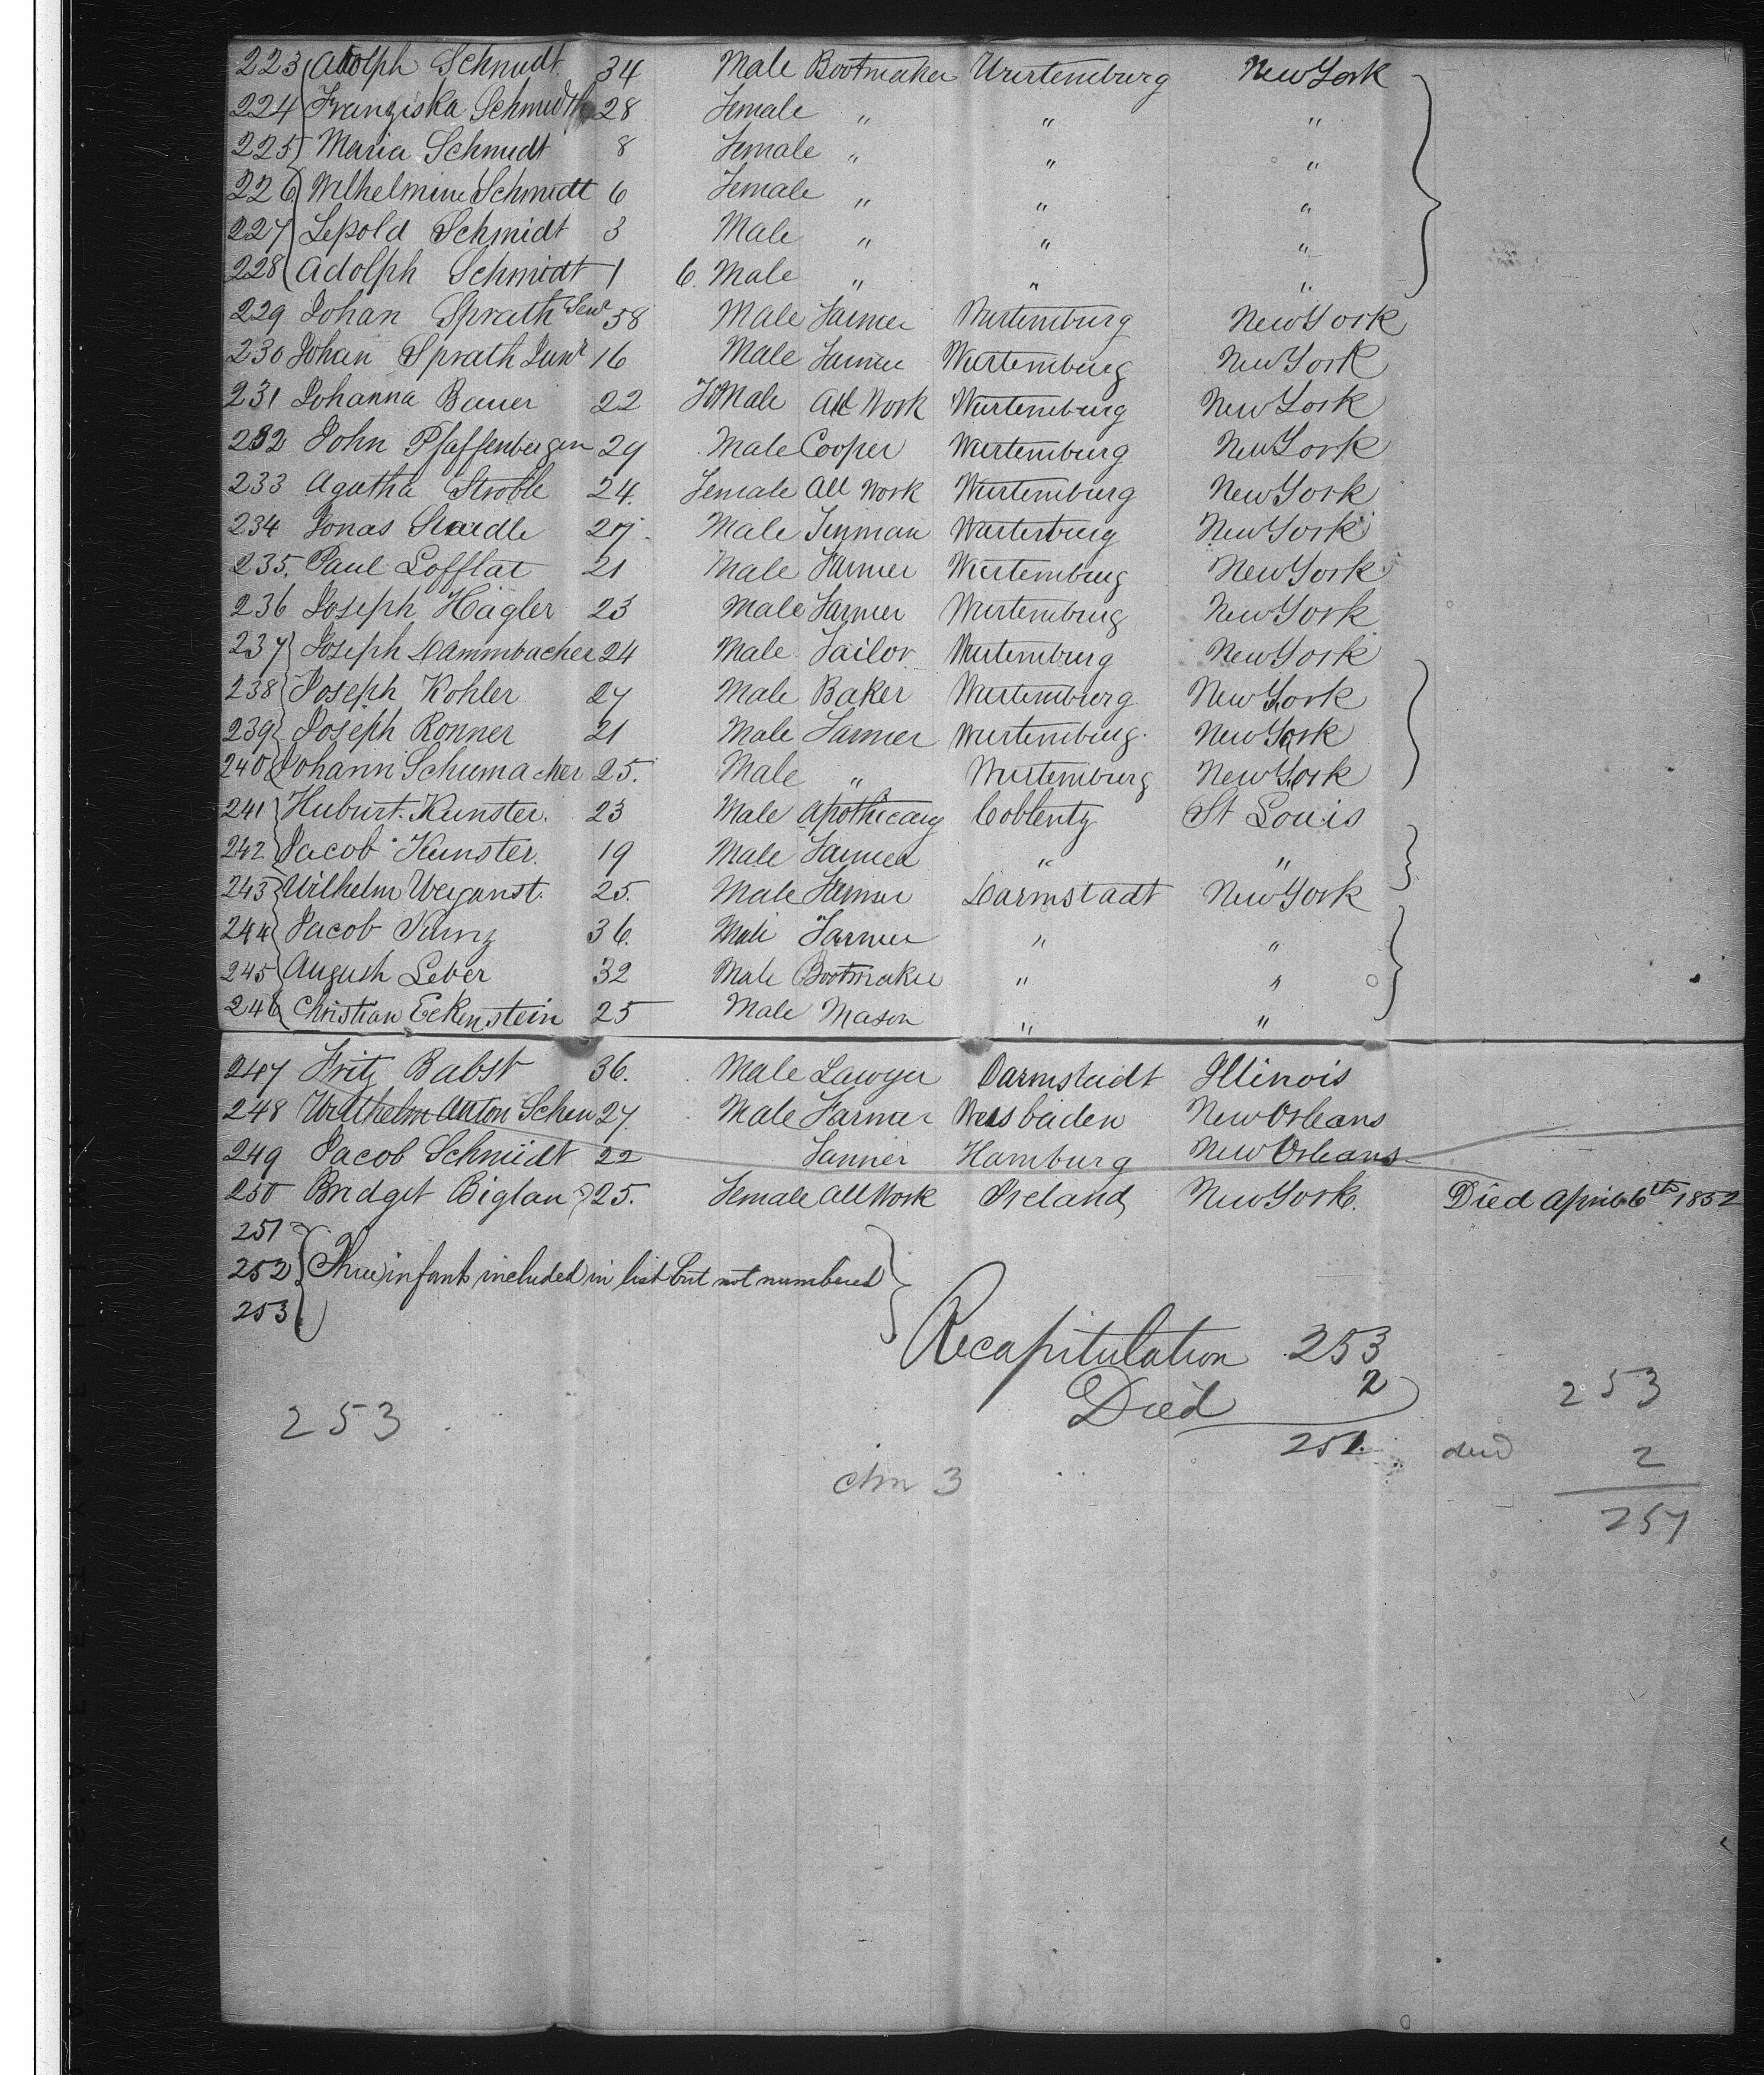 223 Adolph Schmidt 34 Male Bootmaker Wurtemburg New York
224 Franziska Schmidt 28 Female " " "
225 Maria Schmidt 8 Female " " "
226 Wilhelmine Schmidt 6 Female " " "
227 Lepold Schmidt 3 Male " " "
228 Adolph Schmidt 1 6. Male " " "
229 Johan Sprath Senr 58 Male Farmer Wurtemburg New York
230 Johan Sprath Junr 16 Male Farmer Wurtemburg New York
231 Johanna Bauer 22 FeMale All Work Wurtemburg New York
232 John Pfaffenbergen 29 Male Cooper Wurtemburg New York
233 Agatha Stroble 24. Female All Work Wurtemburg New York
234 Jonas 27. Male Tinman Wurtemburg New York
235. Paul Lofflat 21 Male Farmer Wurtemburg New York
236 Joseph Hagler 23 Male Farmer Wurtemburg New York
237 Joseph Dammbacher 24 Male Tailor Wurtemburg New York
238 Joseph Kohler 27 Male Baker Wurtemburg New York
239 Joseph Ronner 21 Male Farmer Wurtemburg. New York
240 Johann Schumacher 25. Male " Wurtemburg New York
241 Huburt. Kunster. 23 Male Apothicary Coblentz St Louis
242 Jacob Kunster. 19 Male Farmer " "
243 Wilhelm Weyanst. 25. Male Farmer Darmstadt New York
244 Jacob 36. Male Farmer " "
245 August Leber 32 Male Bootmaker " "
246 Christian Eckenstein 25 Male Mason " "
247 Fritz Babst 36. Male Lawyer Darmstadt Illinois
248 Willhelm Anton Schen 27. Male Farmer Weisbaden New Orleans
249 Jacob Schmidt 22 Farmer Hamburg New Orleans
250 Bridget Biglan 25. Female All Work Ireland New York. Died April 6th 1852
251
252 Three infants included in list but not numbered
253
Recapitulation 253
Died 2
251.
253
died 2
251
253
chn 3